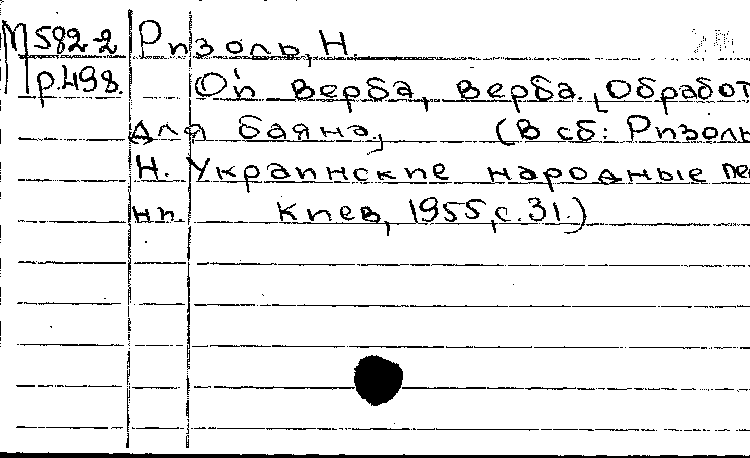 М 582-2 Ризоль, Н.
р.498. Ой верба, верба. [Обработ
для баяна, (В сб: Ризоль
Н. Украинские народные пе
ни. Киев, 1955, с. 31.)